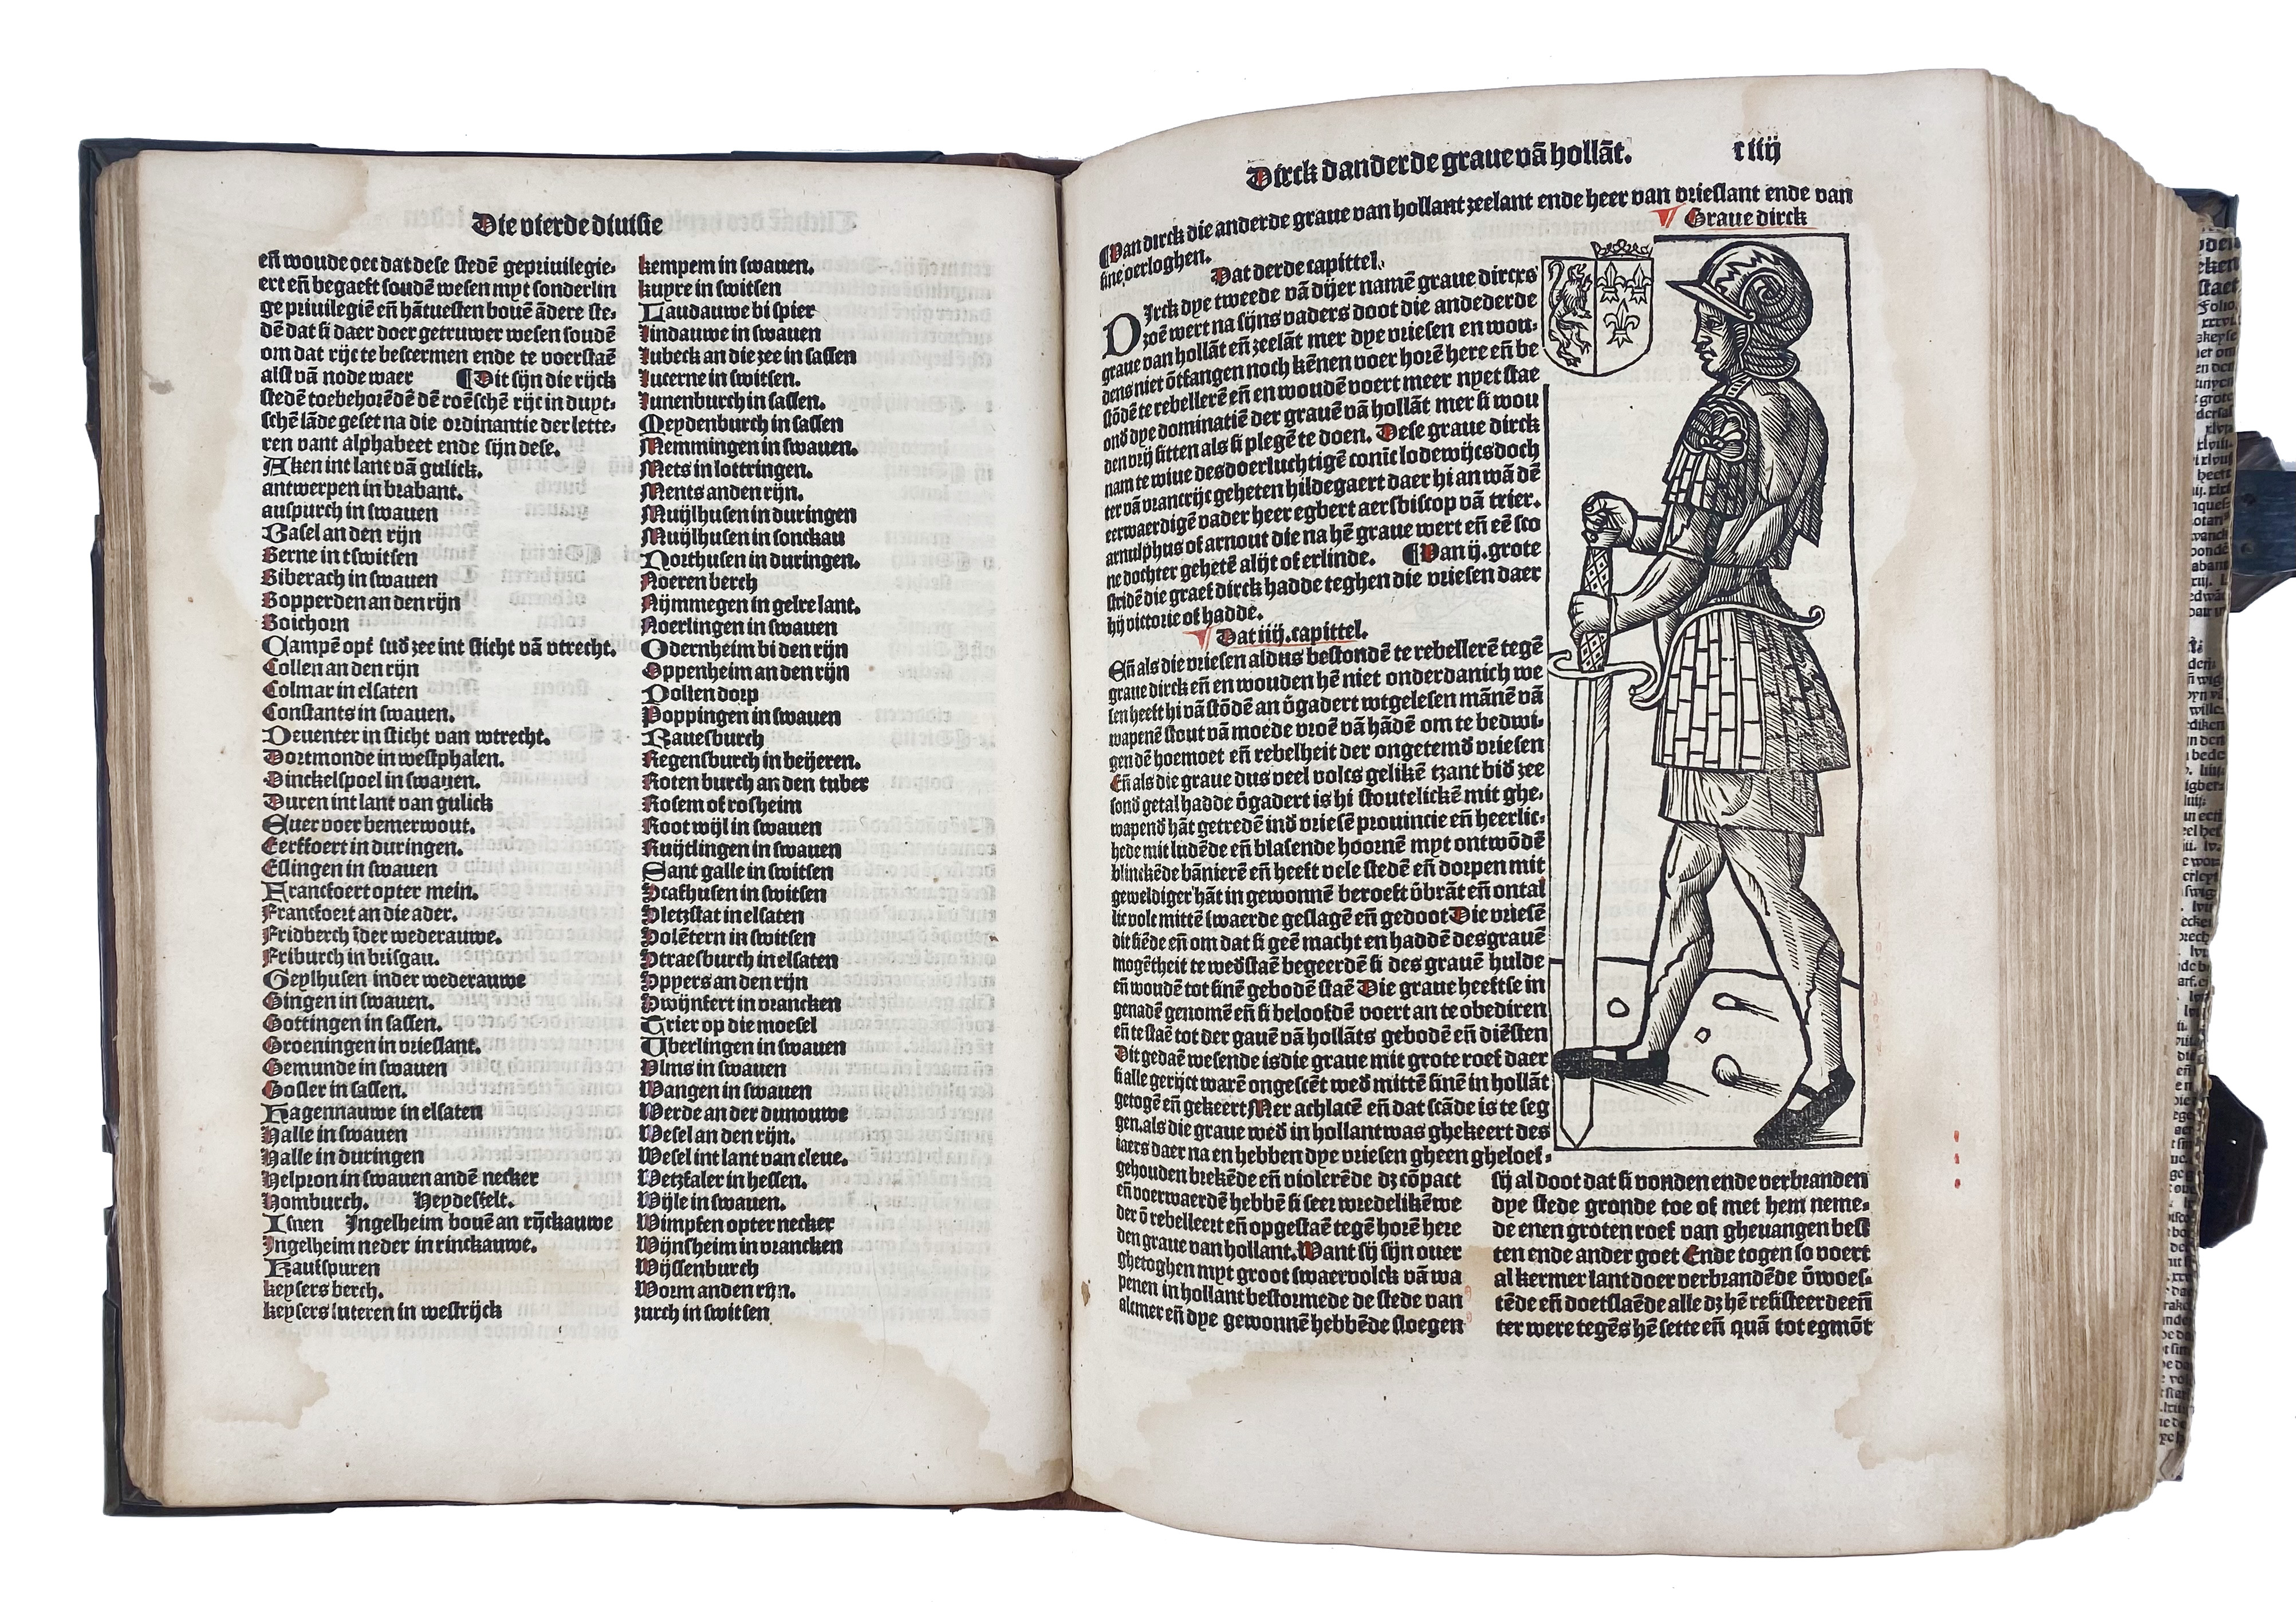 Die vierde diuisie
eñ woude oec dat dese stedē gepriuilegie-
ert eñ begaeft soudē wesen myt sonderlin
ge priuilegiē eñ hātuesten bouē ādere ste-
dē dat si daer doer getruwer wesen soudē
om dat rijc te bescermen ende te voerstaē
alst vā node waer ¶Dit sijn die rijck
stedē toebehorēdē dē roēschē rijc in duyt-
schē lāde geset na die ordinantie der lette-
ren vant alphabeet ende sijn dese.
Aken int lant vā gulick.
antwerpen in brabant.
auspurch in swauen
Basel an den rijn
Berne in tswitsen
Biberach in swauen
Bopperden an den rijn
Boichorn
Campē opt sud zee int sticht vā vtrecht.
Collen an den rijn
Colmar in elsaten
Constants in swauen.
Deuenter in sticht van wtrecht.
Dortmonde in westphalen.
Dinckelspoel in swauen.
Duren int lant van gulick
Euer voer bemerwout.
Eerffoert in duringen.
Eslingen in swauen
Franckfoert opter mein.
Francfoert an die ader.
Fridberch īder wederauwe.
Friburch in brisgau.
Geylhusen inder wederauwe
Gingen in swauen.
Gottingen in sassen.
Groeningen in vrieslant.
Gemunde in swauen
Gosler in sassen.
Hagennauwe in elsaten
Halle in swauen
Halle in duringen
Helpron in swauen andē necker
Homburch. Heydefelt.
Isnen Jngelheim bouē an rijckauwe
Jngelheim neder in rinckauwe.
Kaufspuren
keysers berch.
keysers luteren in westrijck
kempem in swauen.
kuyre in switsen
Laudauwe bi spier
lindauwe in swauen
lubeck an die zee in sassen
lucerne in switsen.
lunenburch in sassen.
Meydenburch in sassen
Memmingen in swauen.
Mets in lottringen.
Ments anden rijn.
Muijlhusen in duringen
Muijlhusen in sonckau
Northusen in duringen.
Noeren berch
Nijmmegen in gelre lant.
Noerlingen in swauen
Odernheim bi den rijn
Oppenheim an den rijn
Pollen dorp
Poppingen in swauen
Rauesburch
Regensburch in beijeren.
Roten burch an den tuber
Rosem of rosheim
Root wijl in swauen
Ruijtlingen in swauen
Sant galle in switsen
Scafhusen in switsen
Sletzstat in elsaten
Solētern in switsen
Straesburch in elsaten
Spyers an den rijn
Swijnfert in vrancken
Trier op die moesel
Uberlingen in swauen
Vlms in swauen
Wangen in swauen
Werde an der dunouwe
Wesel an den rijn.
Wesel int lant van cleue.
Wetzfaler in hessen.
Wijle in swauen.
Wimpfen opter necker
Wijnsheim in vrancken
Wijssenburch
Worm anden rijn.
zurch in switsen
Dirck dander de graue vā hollāt. r iiij
¶Van dirck die anderde graue van hollant zeelant ende heer van vrieslant ende van
sine oerloghen.
Graue dirck
Dat derde capittel.
DJrck dye tweede vā dijer namē graue dircxs
zoē wert na sijns vaders doot die andederde
graue van hollāt eñ zeelāt mer dye vriesen en wou-
dens niet ōtfangen noch kēnen voer horē here eñ be
stōdē te rebellerē eñ en woudē voert meer nyet stae
ond dye dominatiē der grauē vā hollāt mer si wou
den vrij sitten als si plegē te doen. Dese graue dirck
nam te wiue des doerluchtigē conīc lodewijcs doch
ter vā vrancrijc geheten hildegaert daer hi an wā dē
eerwaerdigē vader heer egbert aersbiscop vā trier.
arnulphus of arnout die na hē graue wert eñ eē sco
ne dochter gehetē alijt of erlinde. ¶Van ij. grote
stridē die graef dirck hadde teghen die vriesen daer
hij victorie of hadde.
Dat iiij. capittel.
Eñ als die vriesen aldus bestondē te rebellerē tegē
graue dirck eñ en wouden hē niet onderdanich we
sen heeft hi vā stōdē an v̄gadert wtgelesen mānē vā
wapenē stout vā moede vroē vā hādē om te bedwi-
gen dē hoemoet eñ rebelheit der ongetemd vriesen
Eñ als die graue dus veel volcs gelikē tzant bid zee
sond getal hadde v̄gadert is hi stoutelickē mit ghe-
wapend hāt getredē ind vriesē prouincie eñ heerlic-
hede mit ludēde eñ blasende hoornē myt ontwōdē
blinckēde bānierē eñ heeft vele stedē eñ dorpen mit
geweldiger hāt in gewonnē beroeft v̄brāt eñ ontal
lic volc mittē swaerde geslagē eñ gedoot Die vriesē
dit siēde eñ om dat si geē macht en haddē des grauē
mogētheit te wedstaē begeerdē si des grauē hulde
eñ woudē tot sinē gebodē staē Die graue heeftse in
genadē genomē eñ si beloofdē voert an te obediren
eñ te staē tot der gauē vā hollāts gebodē eñ diēsten
Dit gedaē wesende is die graue mit grote roef daer
si alle gerijct warē ongescēt wed mittē sinē in hollāt
getogē eñ gekeert Mer achlacē eñ dat scāde is te seg
gen. als die graue wed in hollant was ghekeert des
iaers daer na en hebben dye vriesen gheen gheloef-
gehouden brekēde eñ violerēde dz cōpact
eñ voerwaerdē hebbē si seer wredelikē we
der ō rebelleert eñ opgestaē tegē horē here
den graue van hollant. Want sij sijn ouer
ghetoghen myt groot swaer volck vā wa
penen in hollant bestormede de stede van
alcmer eñ dye gewonnē hebbēde sloegen
sij al doot dat si vonden ende verbranden
dye stede gronde toe of met hem neme-
de enen groten roef van gheuangen best
ten ende ander goet Ende togen so voert
al kermer lant doer verbrandēde v̄woes-
tēde eñ doetslaēde alle dz hē resisteerde eñ
ter were tegēs hē sette eñ quā tot egmōt